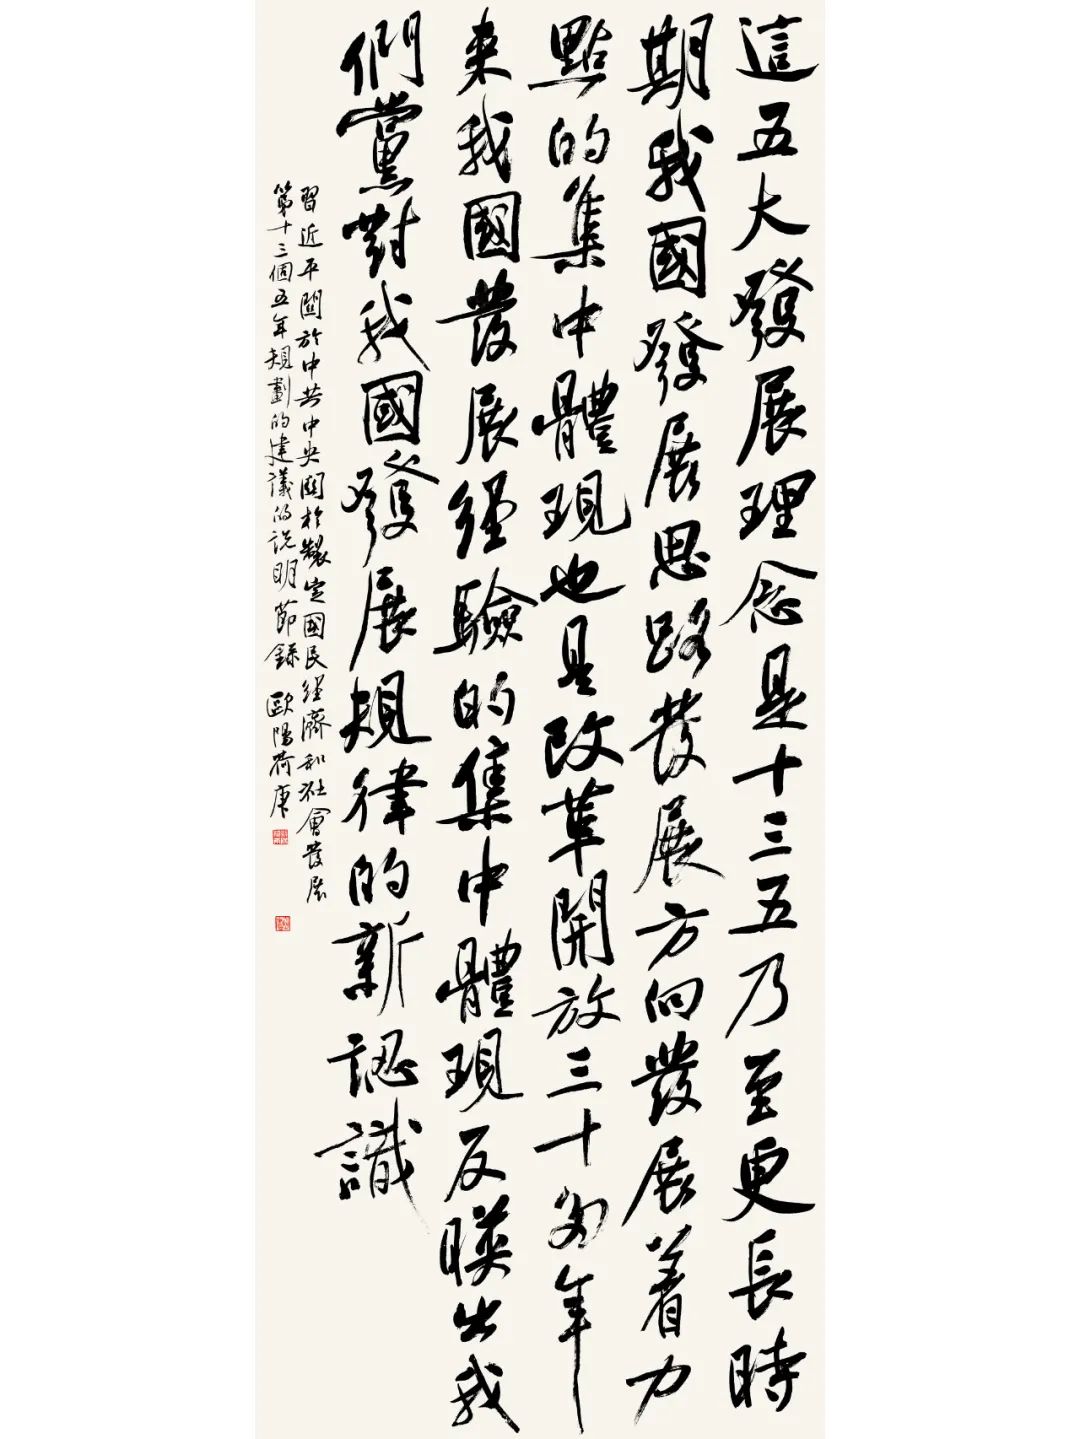 這五大發展理念是十三五乃至更長時
期我國發展思路發展方向發展着力
點的集中體現也是改革開放三十多年
來我國發展經驗的集中體現反映出我
們黨對我國發展規律的新認識
習近平關於中共中央關於製定國民經濟和社會發展
第十三個五年規劃的建議的說明節錄 歐陽荷庚